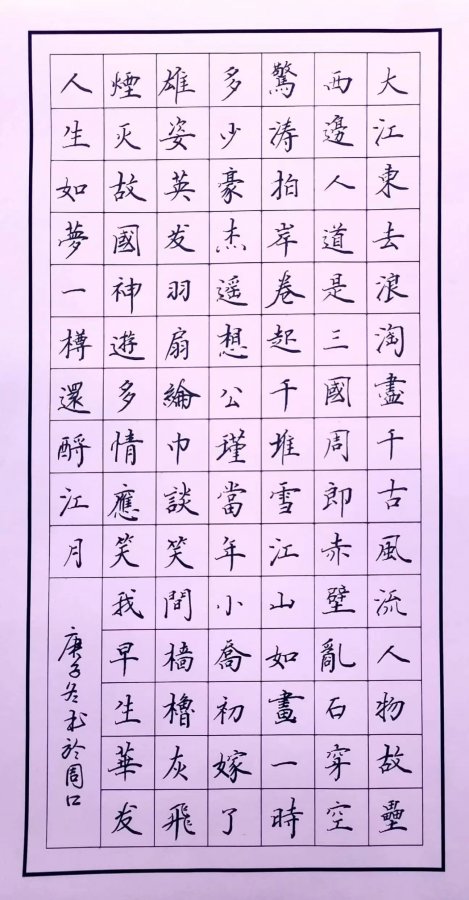 大江東去浪淘盡千古風流人物故壘
西邊人道是三國周郎赤壁亂石穿空
驚涛拍岸卷起千堆雪江山如畫一時
多少豪杰遥想公瑾當年小喬初嫁了
雄姿英发羽扇綸巾談笑間檣櫓灰飛
煙灭故國神遊多情應笑我早生華发
人生如夢一樽還酹江月
庚子冬於周口